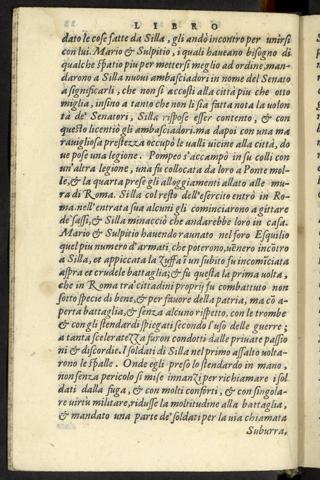 LIBRO
dato le cose fatte da Silla, gli andò incontro per unirsi
con lui. Mario & Sulpitio, i quali haueano bisogno di
qualche spatio piu per mettersi meglio ad ordine, man-
darono a Silla nuoui ambasciadori in nome del Senato
à significarli, che non si accosti alla città piu che otto
miglia, insino a tanto che non li sia fatta nota la volon
tà de' Senatori, Silla rispose esser contento, & con
questo licentiò gli ambasciadori. ma dapoi con una ma
rauigliosa prestezza occupò le ualli uicine alla città, do
ue pose una legione. Pompeo s'accampò in su colli con
un'altra legione, una fu collocata da loro a Ponte mol-
le, & la quarta prese gli alloggiamenti allato alle mu-
ra di Roma. Silla col resto dell'esercito entrò in Ro-
ma. nell'entrata sua alcuni gli cominciarono a gittare
de' sassi, & Silla minacciò che andarebbe loro in casa.
Mario & Sulpitio hauendo raunato nel foro Esquilio
quel piu numero d'armati, che poterono, uēnero incōtro
a Silla, et appiccata la zuffa i un subito fu incomīciata
aspra et crudele battaglia; & fu questa la prima volta,
che in Roma tra' cittadini proprij fu combattuto non
sotto specie di bene, & per fauore della patria, ma cō a-
perta battaglia, & senza alcuno rispetto, con le trombe
& con gli stendardi spiegati secondo l'uso delle guerre;
a tanta scelerateZZa furon condotti dalle private passio
ni & discordie. I soldati di Silla nel primo assalto volta-
rono le spalle. Onde egli preso lo stendardo in mano,
non senza pericolo si mise innanzi per richiamare i sol
dati dalla fuga, & con molti conforti, & con singola-
re virtù militare, ridusse la moltitudine alla battaglia,
& mandato una parte de' soldati per la via chiamata
Suburra,